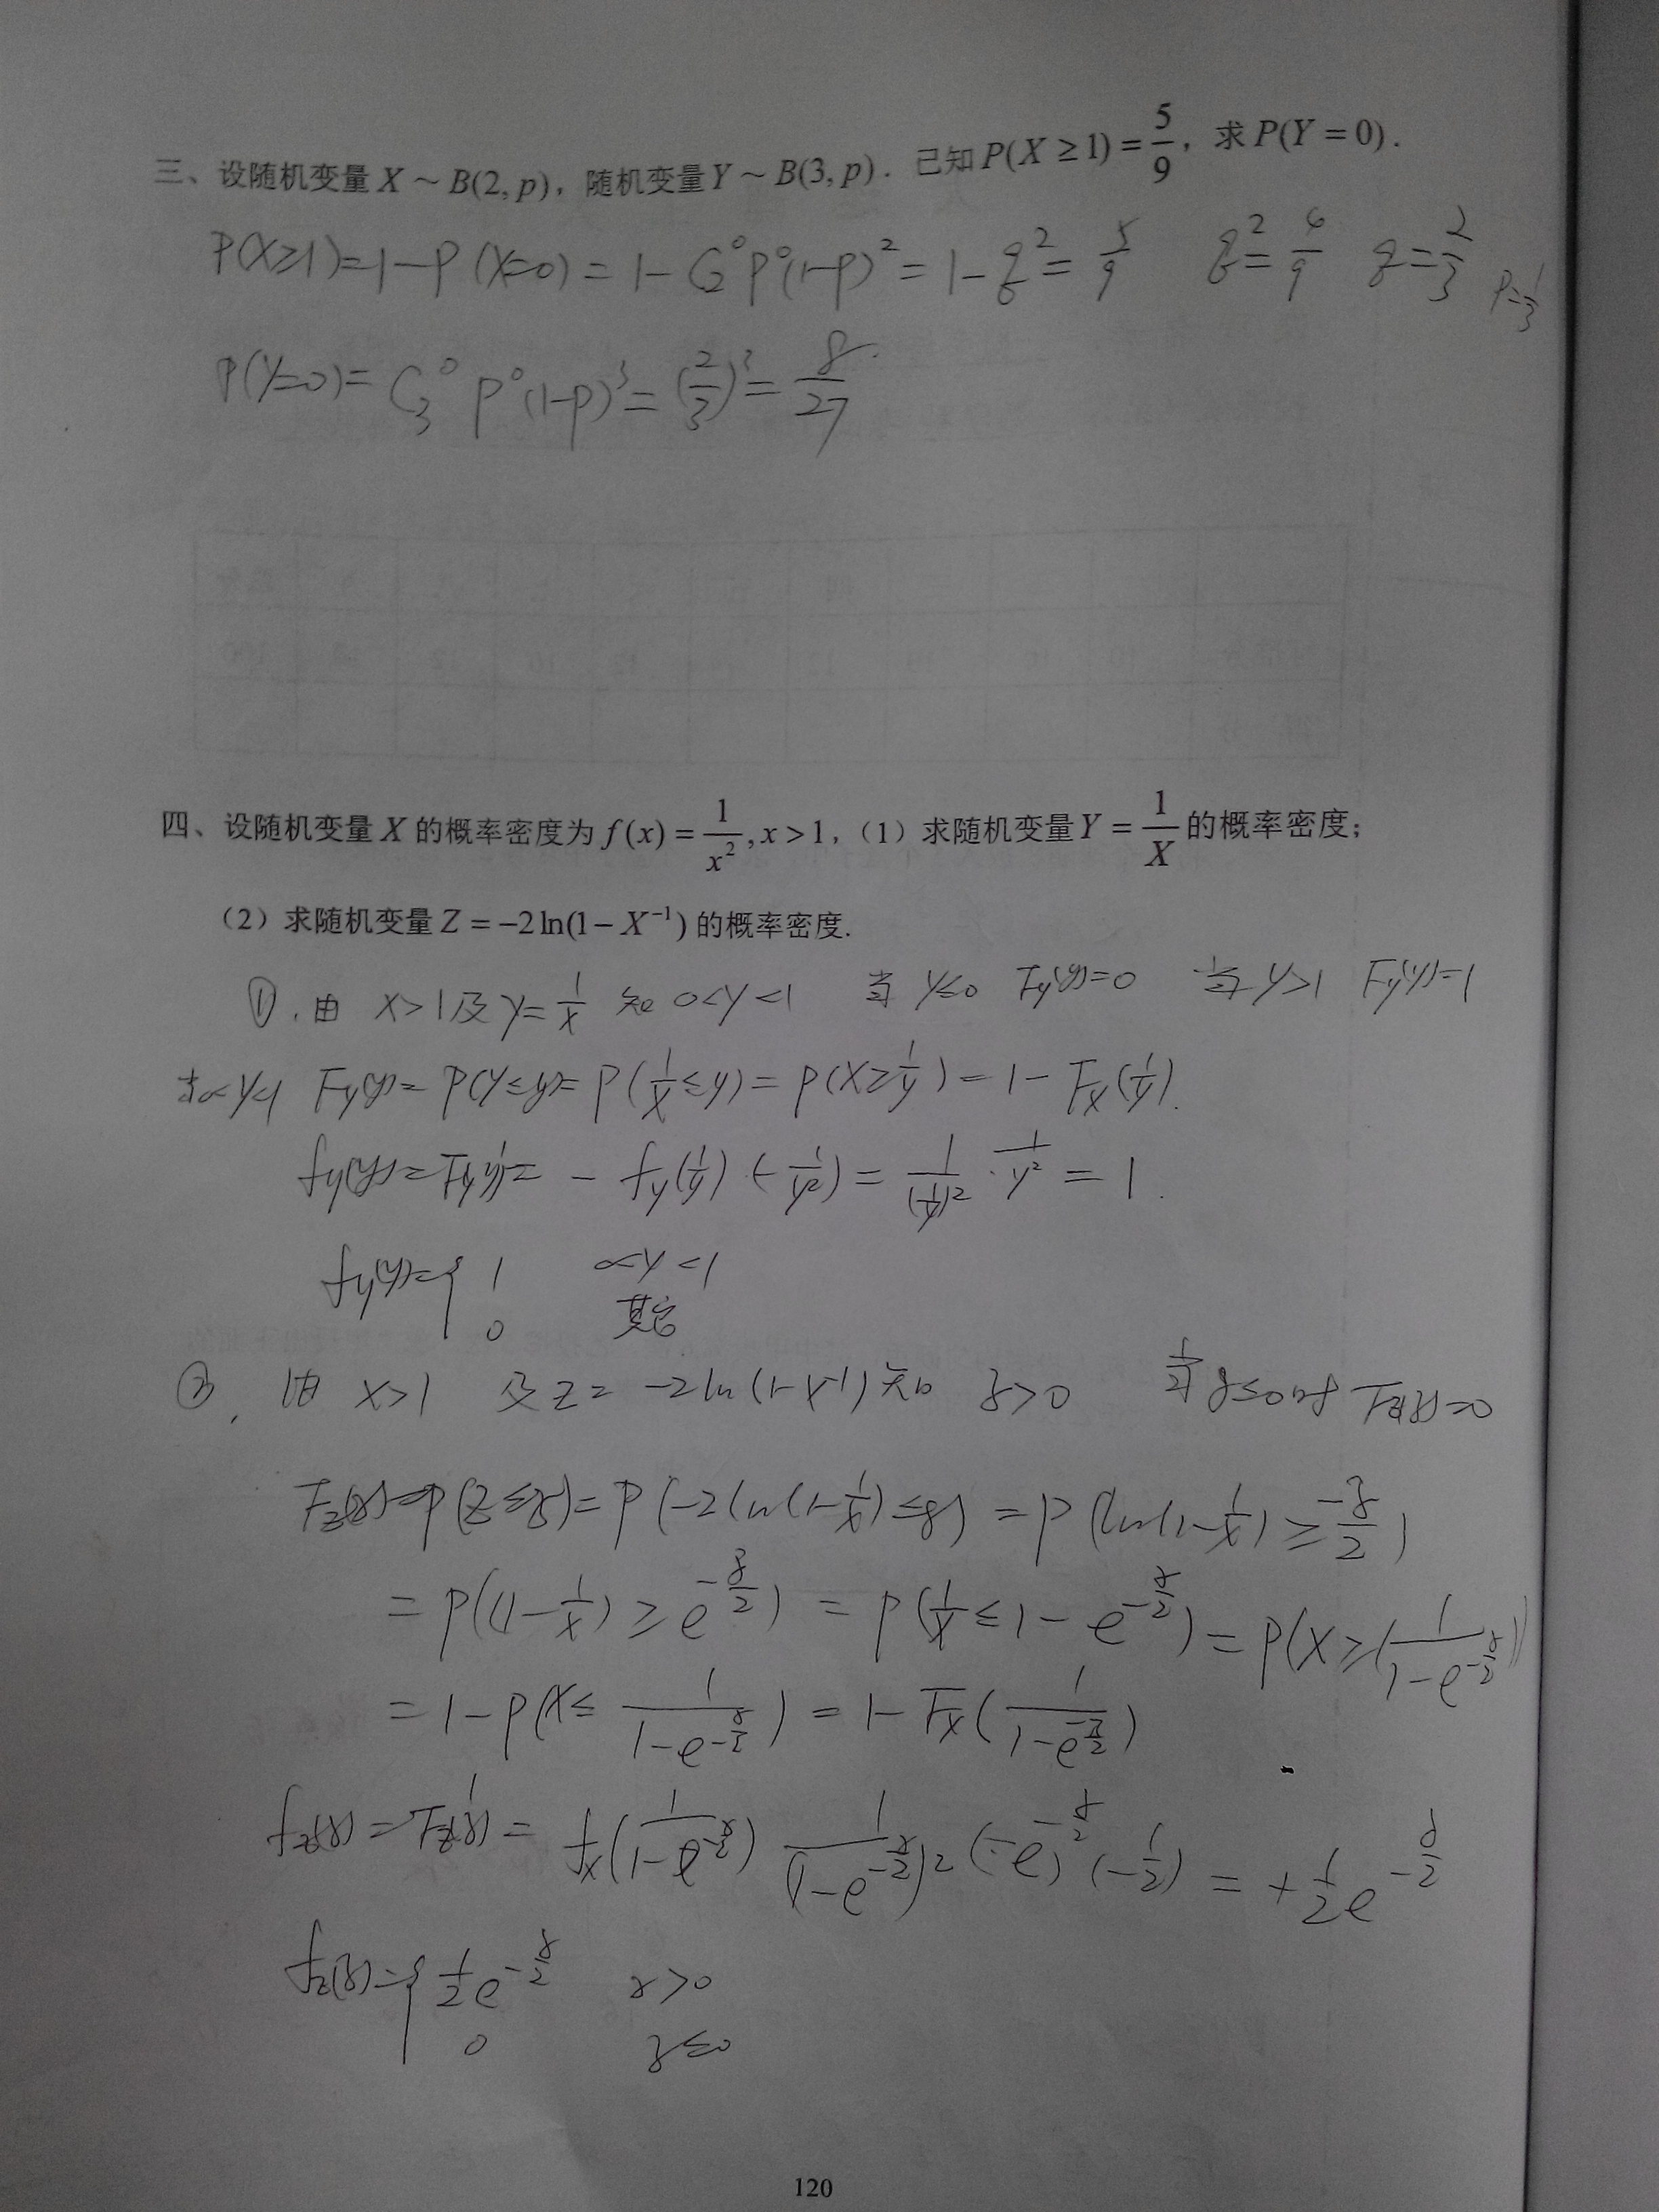 三、设随机变量 X ~ B(2, p)，随机变量 Y ~ B(3, p)．已知 P(X ≥ 1) = 5/9，求 P(Y = 0)．
P(X≥1)=1-P(X=0) = 1-C₂⁰P⁰(1-P)² = 1-q² = 5/9 q²=4/9 q=2/3 P=1/3
P(Y=0)= C₃⁰ P⁰(1-P)³ = (2/3)³ = 8/27
四、设随机变量 X 的概率密度为 f(x) = 1/x², x > 1，（1）求随机变量 Y = 1/X 的概率密度；
（2）求随机变量 Z = −2 ln(1 − X⁻¹) 的概率密度.
①. 由 X>1 及 Y=1/X 知 0<Y<1 当 Y≤0 F_Y(y)=0 当 Y>1 F_Y(y)=1
当0<Y<1 F_Y(y)=P(Y≤y)=P(1/X≤y)=P(X≥1/y)=1-F_X(1/y).
f_Y(y)=F_Y'(y)= - f_Y(1/y) (-1/y²) = 1/(1/y)² · 1/y² = 1.
f_Y(y)={ 1 0<Y<1
0 其它
②. 由 X>1 及 Z= -2ln(1-X⁻¹) 知 z>0 当z≤0时 F_Z(z)=0
F_Z(z)=P(Z≤z)=P(-2ln(1-1/X)≤z) = P(ln(1-1/X) ≥ -z/2)
= P((1-1/X) ≥ e^(-z/2)) = P(1/X ≤ 1-e^(-z/2)) = P(X≥(1/(1-e^(-z/2))))
= 1-P(X≤ 1/(1-e^(-z/2))) = 1-F_X(1/(1-e^(-z/2)))
f_Z(z)=F_Z'(z)= f_X(1/(1-e^(-z/2))) 1/(1-e^(-z/2))² (-e)^(-z/2) (-1/2) = +1/2 e^(-z/2)
f_Z(z)={ 1/2 e^(-z/2) z>0
0 z≤0
120